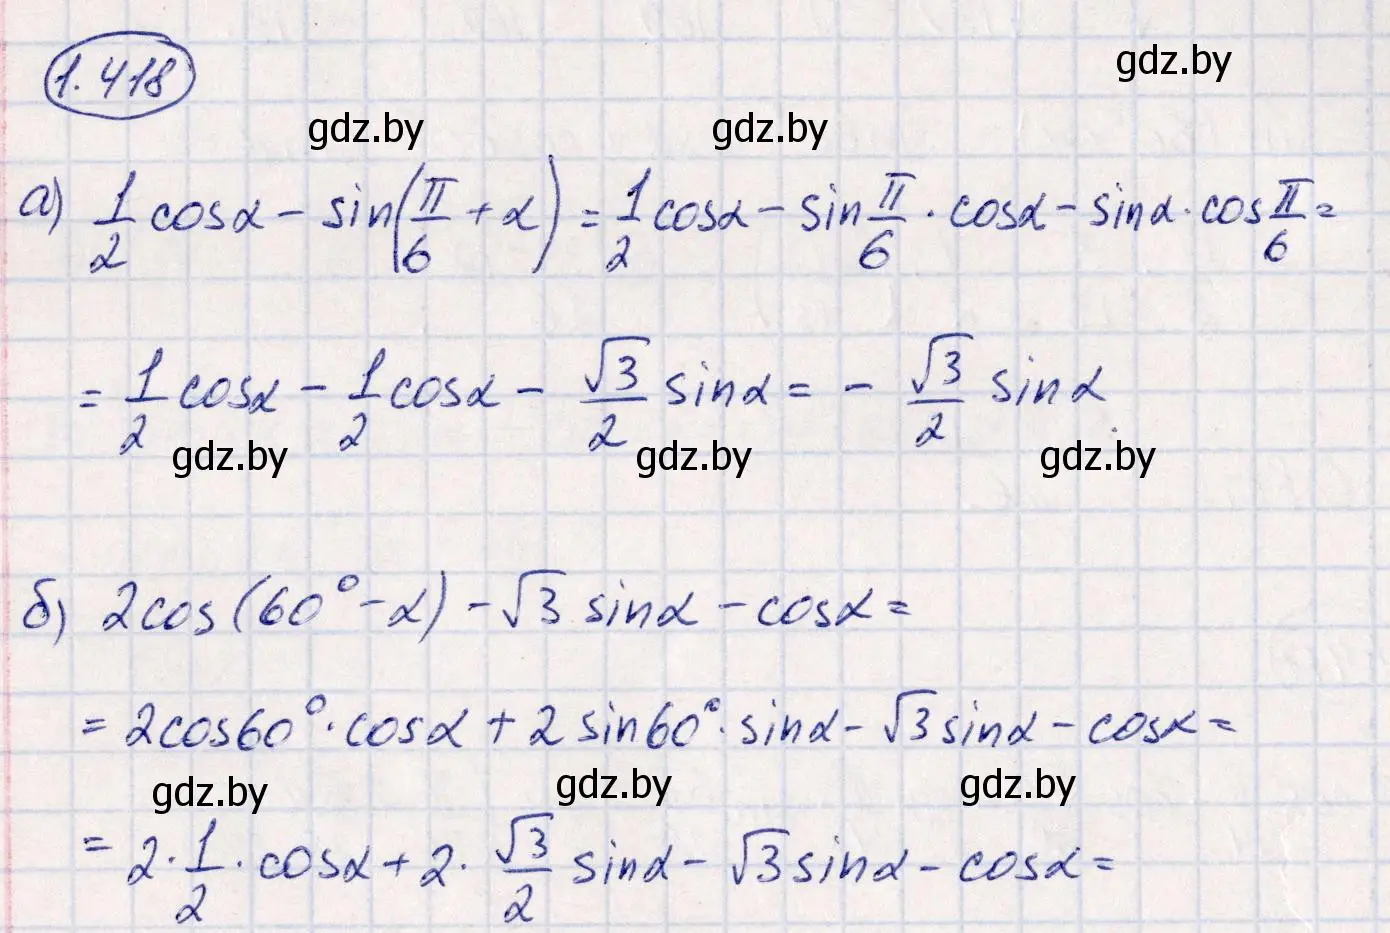 1.418
gdz.by
gdz.by gdz.by
а) 1/2 cosα - sin(π/6 + α) = 1/2 cosα - sin π/6 · cosα - sinα · cos π/6 =
= 1/2 cosα - 1/2 cosα - √3/2 sinα = - √3/2 sinα.
gdz.by gdz.by gdz.by
б) 2cos(60° - α) - √3 sinα - cosα =
= 2cos60° · cosα + 2 sin60° · sinα - √3 sinα - cosα =
gdz.by gdz.by gdz.by
= 2 · 1/2 · cosα + 2 · √3/2 sinα - √3 sinα - cosα =